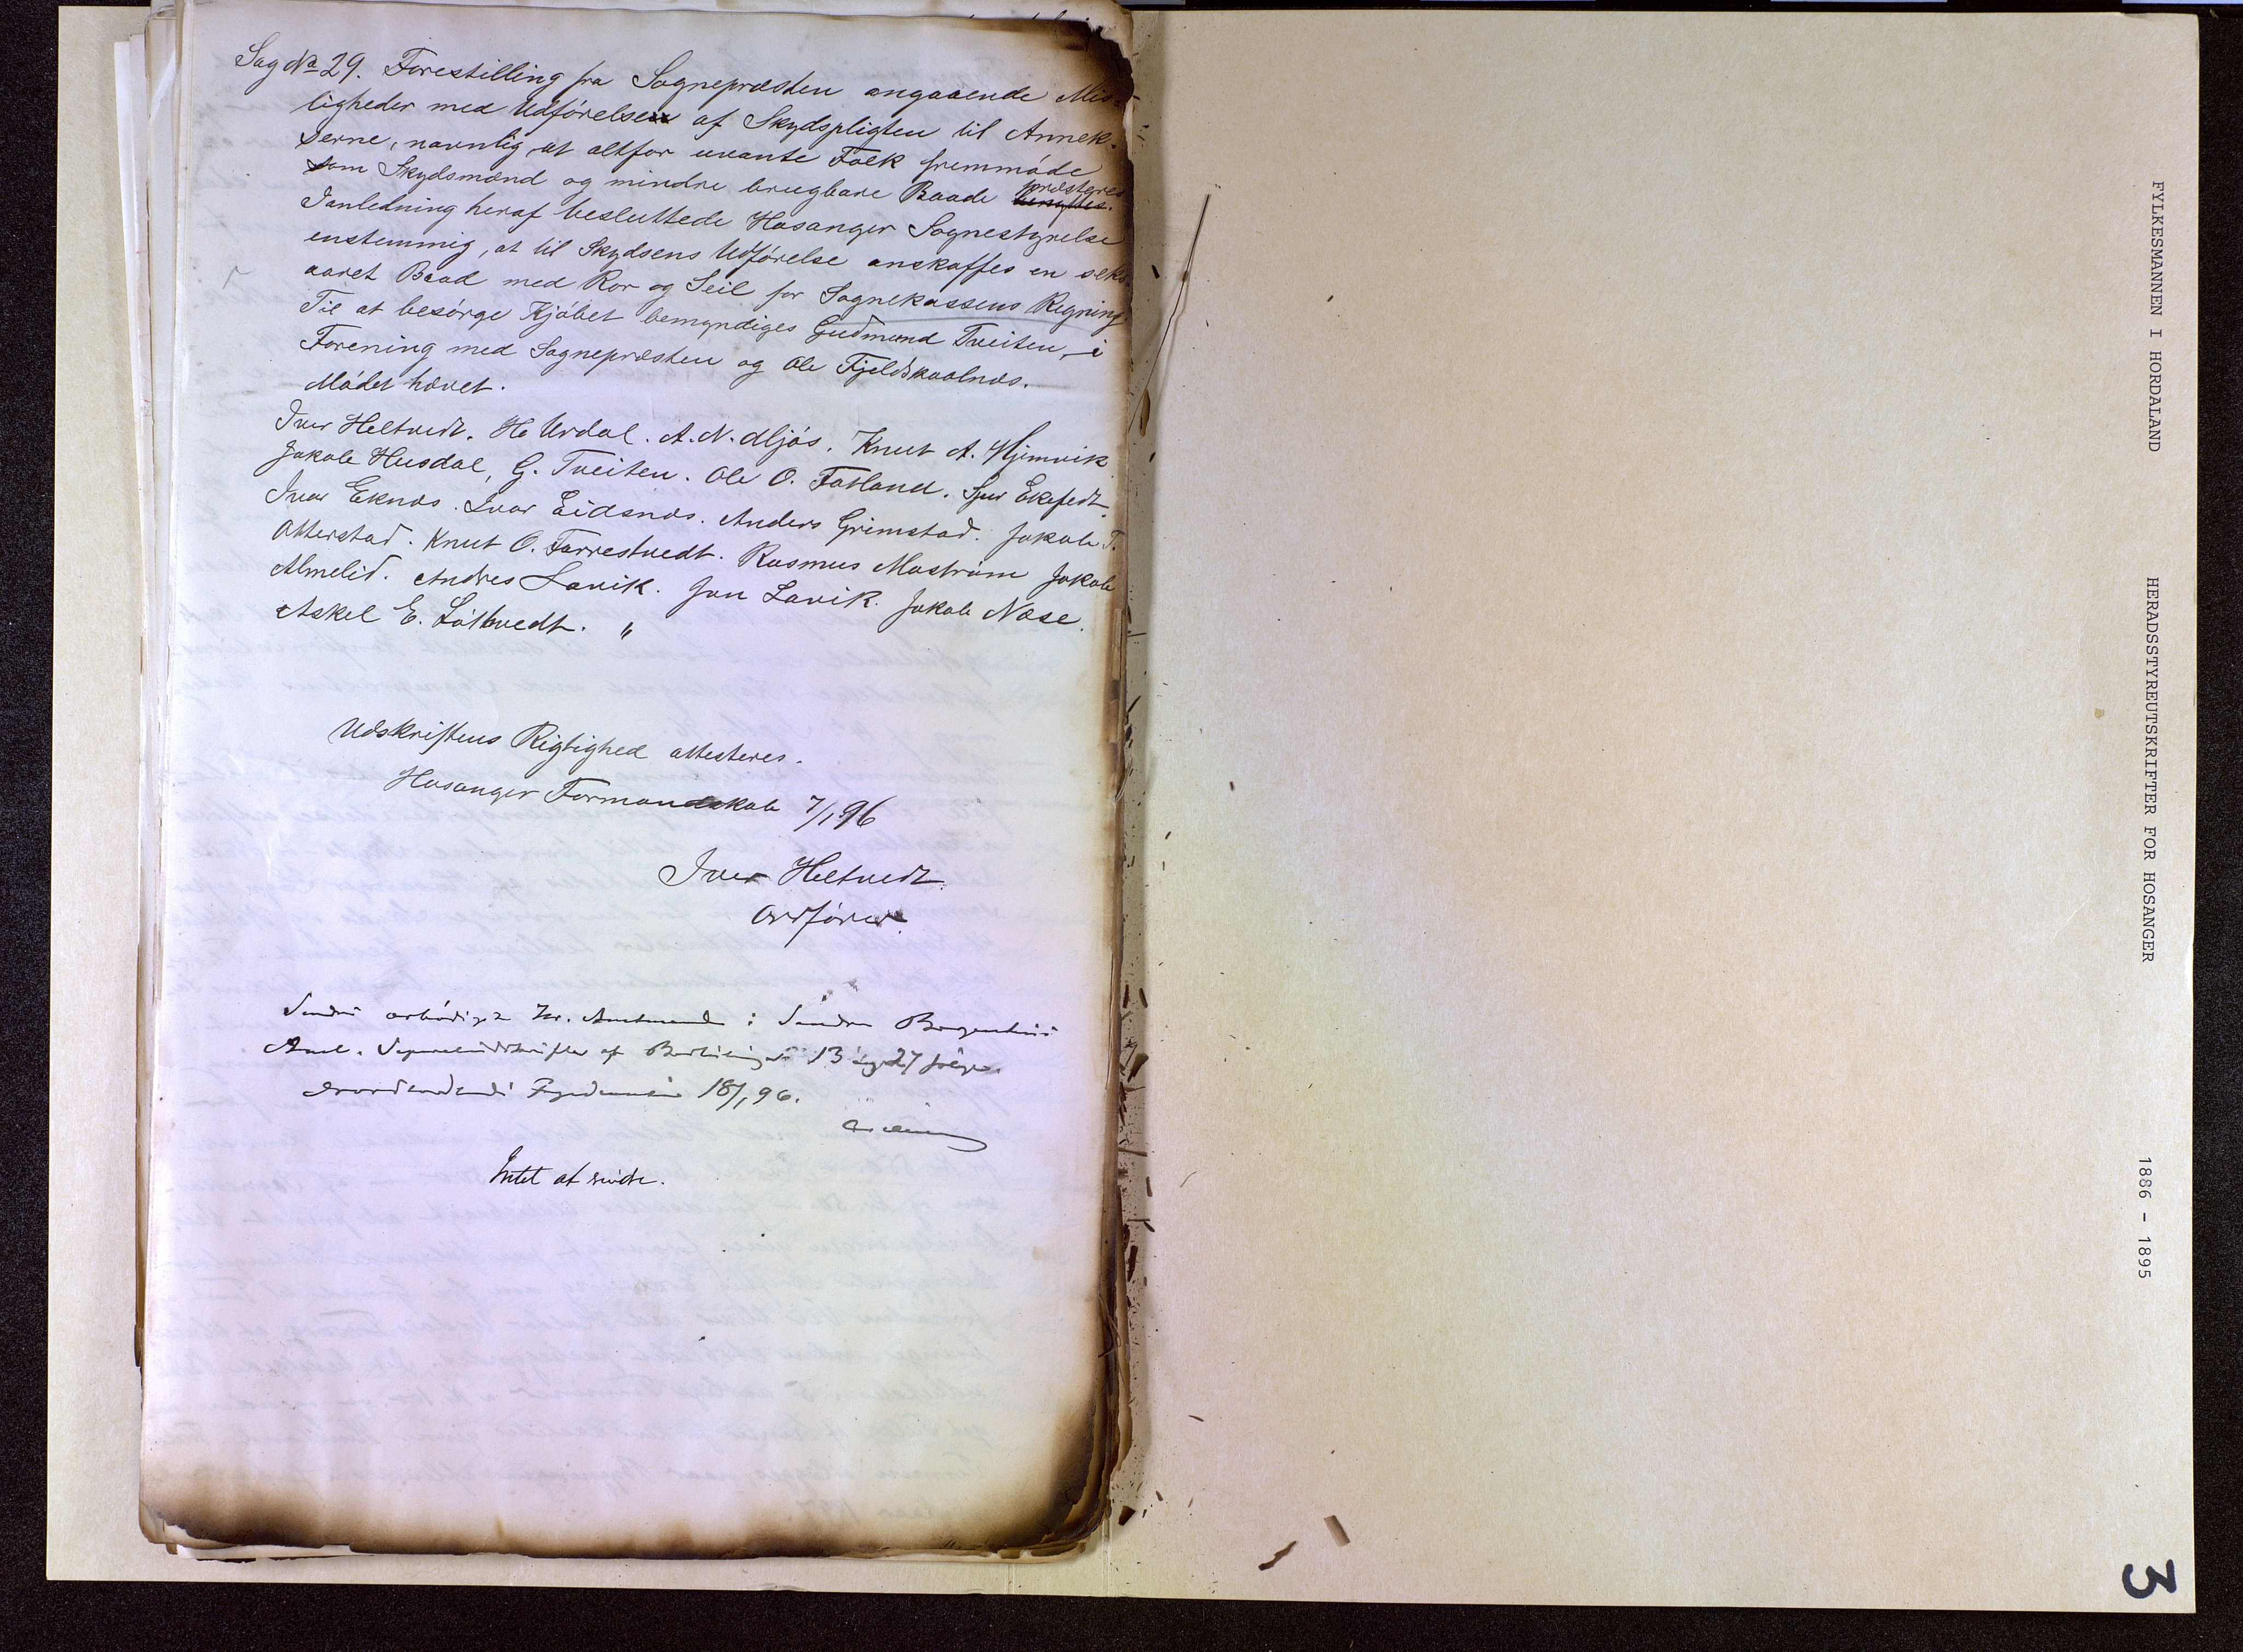 Sag No 29. Forestilling fra Sognepræsten angaaende Mis-
ligheder med Udførelsen af Skydspligten til Annek-
serne, navnlig at altfor uvante Folk fremmøde
som Skydsmænd og mindre brugbare Baade præsteres
benyttes.
I anledning heraf besluttede Hosanger Sognestyrelse
enstemmig, at til Skydsens Udførelse anskaffes en seks-
aaret Baad med Ror og Seil for Sognekassens Regning
Til at besørge Kjøbet bemyndiges Gudmund Tveiten, i
Forening med Sognepræsten og Ole Fjeldskaalnæs.
Mødet hævet.
Iver Heltvedt. H. Urdal. A. N. Mjøs. Knut A. Hjemvik
Jakob Husdal, G. Tveiten. Ole O. Fatland.
Ivar Eknæs. Ivar Eidsnæs. Anders Grimstad. Jakob T.
Otterstad. Knut O. Farrestvedt. Rasmus Mostrøm Jakob
Almelid. Andres Lavik. Jon Lavik. Jakob Nøse.
Askel E. Løtvedt. "
Udskriftens Rigtighed attesteres.
Hosanger Formandskab 7/1 96
Iver Heltvedt.
Ordfører.
Sendes ærbødigst Hr. Amtmanden i Søndre Bergenhus
Amt. Separatudskrifter af 13 og 27 følger.
18/1 96.
Intet at
FYLKESMANNEN I HORDALAND HERADSSTYREUTSKRIFTER FOR HOSANGER 1886 - 1895
3